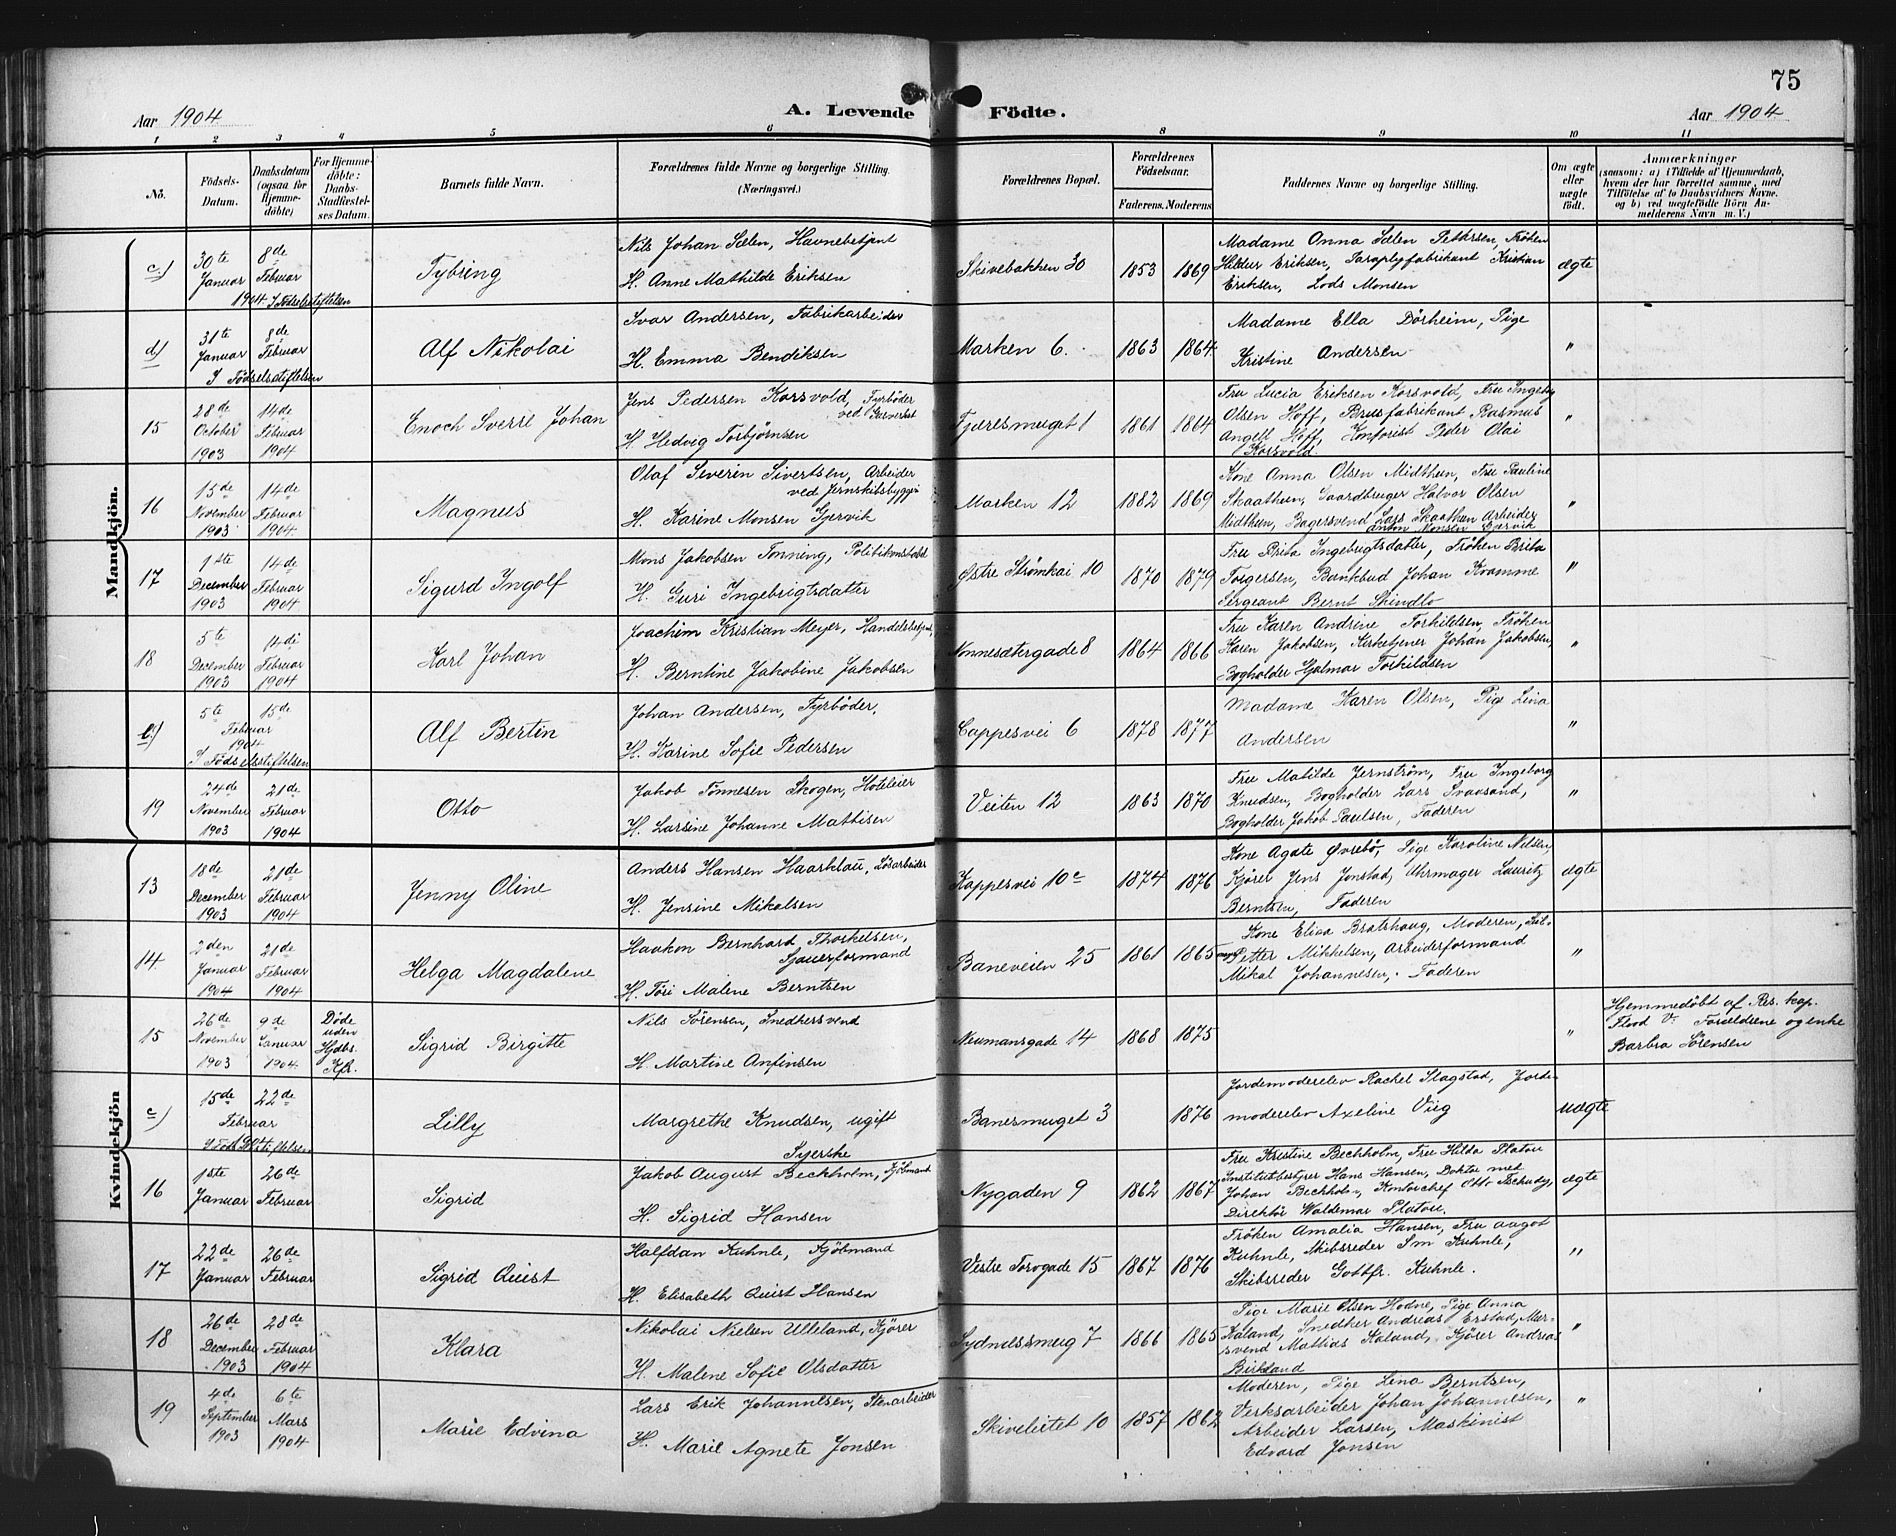 75
Aar 1904 A. Levende Födte. Aar 1904
1 2 3 4 5 6 8 9 10 11
No.
Födsels-Datum.
Daabsdatum (ogsaa for Hjemme-döbte)
For Hjemme-döbte: Daabs-Stadfæstel-ses Datum.
Barnets fulde Navn.
Forældrenes fulde Navne og borgerlige Stilling. (Næringsvei.)
Forældrenes Bopæl.
Forældrenes Födselsaar.
Faderens. Moderens.
Faddernes Navne og borgerlige Stilling.
Om ægte eller uægte födt.
Anmærkninger
(saasom: a) i Tilfælde af Hjemmedaab, hvem der har forrettet samme, med Tilföielse af to Daabsvidners Navne. og b) ved uægtefödte Börn Anmelderens Navn m. V.)
Mandkjön.
c.) 30te Januar 8de Februar 1904 I Födselsstiftelsen
Tybring
Nils Johan Sælen, Havnebetjent
H. Anne Mathilde Eriksen
Skivebakken 30 1853 1869
Madame Onna Sælen Pettersen, Fröken
Hilder Eriksen, Paraplyfabrikant Kristian
Eriksen, Lods Monsen
ægte
d) 31te Januar 8de Februar I Födselsstiftelsen
Alf Nikolai
Ivar Andersen, Fabrikarbeider
H. Emma Bendiksen
Marken 6. 1863 1864
Madame Ella Dörheim, Pige
Kristine Andersen
"
15 28de October 1903 14de Februar 1904
Enoch Sverre Johan
Jens Pedersen Korsvold, Fyrböder
ved Gasverket
H. Hedvig Torbjörnsen
Fjæresmuget 1 1861 1864
Fru Lucia Eriksen Korsvold, Fru Ingeborg
Olsen Hoff, Brusfabrikant Rasmus
Angell Hoff, Kontorist Peder Olai
Korsvold.
"
16 15de November 1903 14de Februar 1904
Magnus
Olaf Severin Sivertsen, Arbeider
ved Jernskibsbyggeri
H. Karine Monsen Gjervik
Marken 12 1882 1869
Kone Anna Olsen Midthun, Fru Pauline
Skaathun, Gaardbruger Halvor Olsen
Midthun, Bagersvend Lars Skaathun Arbeider
Anton Monsen Gjervik
"
17 1ste December 1903 14de Februar 1904
Sigurd Ingolf
Mons Jakobsen Tonning, Politikonstabel
H. Guri Ingebrigtsdatter
Østre Strömkai 10 1870 1879
Fru Brita Ingebrigtsdatter, Fröken Brita
Torgersen, Bankbud Johan Kvamme
Sergeant Bernt Skindlo
"
18 5te December 1903 14de Februar 1904
Karl Johan
Joachim Kristian Meyer, Handelsbetjent,
H. Berntine Jakobine Jakobsen
Nonnesætergade 8 1864 1866
Fru Karen Andrine Torkildsen, Fröken
Karen Jakobsen, Kirketjener Johan Jakobsen,
Bogholder Hjalmar Torkildsen
"
e.) 5te 15de Februar 1904 I Födselsstiftelsen
Alf Bertin
Johan Andersen, Fyrböder,
H. Karine Sofie Pedersen
Cappesvei 6 1878 1877
Madame Karen Olsen, Pige Lina
Andersen
"
19 24de November 1903 21de Februar 1904
Otto
Jakob Tönnesen Skogen, Hoteleier
H. Larsine Johanne Mathisen
Veiten 12 1863 1870
Fru Matilde Jernström, Fru Ingeborg
Knudsen, Bogholder Lars Svaasand,
Bogholder Jakob Paulsen, Faderen
"
Kvindekjön
13 18de December 1903 21de Februar 1904
Jenny Oline
Anders Hansen Haarklau, Lösarbeider
H. Jensine Mikalsen
Kappesvei 10c 1874 1876
Kone Agate Øvrebö, Pige Karoline Nilsen,
Kjörer Jens Jonstad, Uhrmager Lauritz
Berntsen, Faderen
ægte
14. 2den Januar 1904 21de Februar 1904
Helga Magdalene
Haakon Bernhard Thorkelsen,
Sjauerformand
H. Töri Malene Berntsen
Baneveien 25 1861 1865
Kone Elisa Bratshaug, Moderen,
Petter Mikkelsen, Arbeiderformand
Mikal Johannesen, Faderen
"
15 26de November 1903 9de Januar 1904 Döde uden Hjdbs. Kfr.
Sigrid Birgitte
Nils Sörensen, Snedkersvend
H. Martine Anfinsen
Neumansgade 14 1868 1875
"
Hjemmedöbt af Res. kap.
Flood V: Forældrene og enke
Barbra Sörensen
c) 15de 22de Februar I Födselsstiftelsen
Lilly
Margrethe Knudsen, ugift
Syerske
Banesmuget 3 1876
Jordemoderelev Rachel Slagstad, Jorde-
moderelev Axeline Viig
uægte
16 1ste Januar 26de Februar
Sigrid
Jakob August Beckholm, Kjöbmand
H. Sigrid Hansen
Nygaden 9 1862 1867
Fru Kristine Bechholm, Fru Hilda Platou
Institutbestyrer Hans Hansen, Doktor med
Johan Bechholm, Kontorchef Otto Tschudy,
Direktör Waldemar Platou.
ægte
17 22de Januar 26de Februar
Sigrid Quist
Halfdan Kuhnle, Kjöbmand
H. Elisabeth Quist Hansen
Vestre Torvgade 15 1867 1876
Fröken Amalia Hansen, Fru Aagot
Kuhnle, Skibsreder Sm Kuhnle,
Skibsreder Gottfr. Kuhnle.
"
18 26de December 1903 28de Februar 1904
Klara
Nikolai Nielsen Ulleland, Kjörer
H. Malene Sofie Olsdatter
Sydnessmug 7 1866 1865
Pige Marie Olsen Hodne, Pige Anna
Kaland, Snedker Andreas Erstad, Mur-
svend Mathias Kaland, Kjörer Andreas
Birkland
"
19 4de September 1903 6te Mars 1904
Marie Edvina
Lars Erik Johannesen, Stenarbeider
H. Marie Agnete Jonsen
Skiveleitet 10 1857 1862
Moderen, Pige Lina Berntsen,
Verksarbeider Johan Johannesen,
Arbeider Larsen, Maskinist
Edvard Jonsen
"